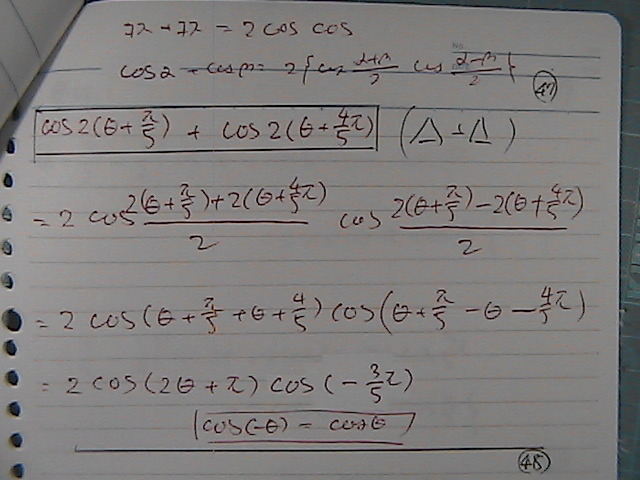 フユ+フユ = 2 cos cos
cosα + cosβ = 2{cos (α+β)/2 cos (α-β)/2}
No.
㊼
cos2(θ+π/5) + cos2(θ+4/5π) (△+△)
= 2 cos (2(θ+π/5)+2(θ+4/5π))/2 cos (2(θ+π/5)-2(θ+4/5π))/2
= 2 cos(θ+π/5+θ+4/5) cos(θ+π/5-θ-4/5π)
= 2 cos(2θ+π) cos(-3/5π)
(cos(-θ) = cosθ)
㊽